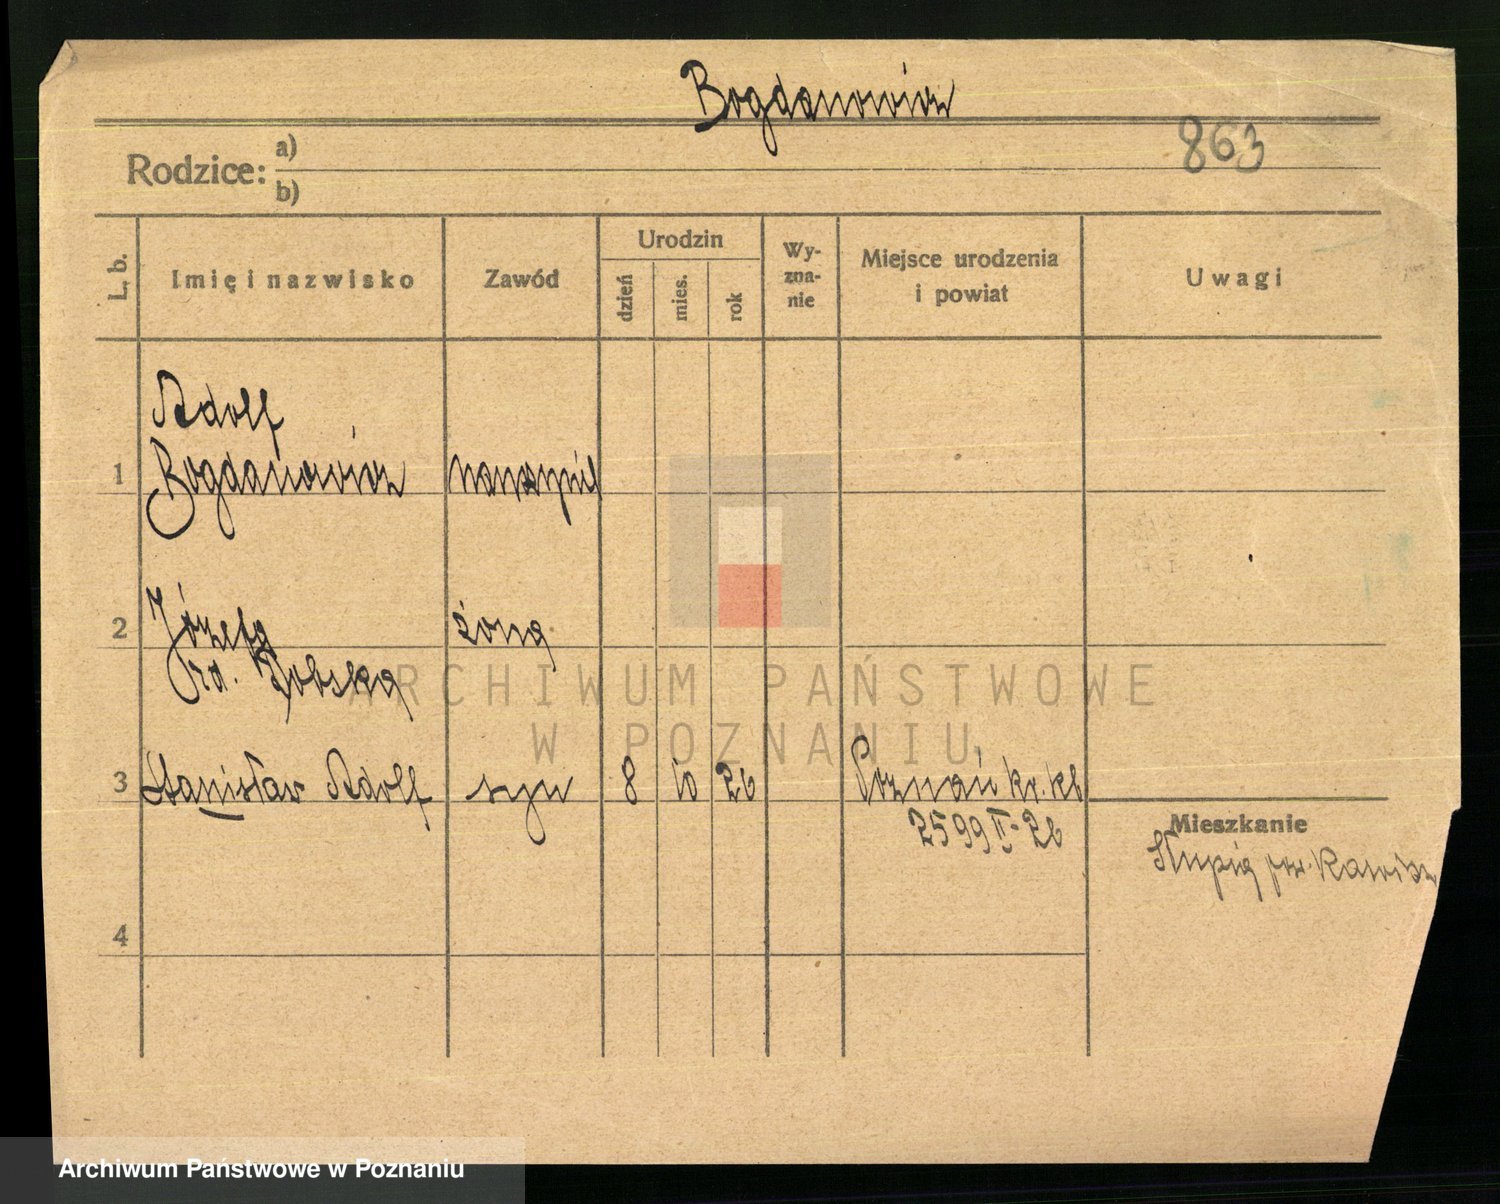 Bogdanowicz
863
Rodzice: a)
b)
L. b.
Imię i nazwisko
Zawód
Urodzin
dzień
mies.
rok
Wy-
zna-
nie
Miejsce urodzenia
i powiat
Uwagi
Adolf
1 Bogdanowicz nauczyciel
2 Józefa żona
3 Stanisław Adolf syn 8 10 26 Poznań kr. kl
2599 II-26
Mieszkanie
Słupia pow.
4
ARCHIWUM PAŃSTWOWE
W POZNANIU
Archiwum Państwowe w Poznaniu